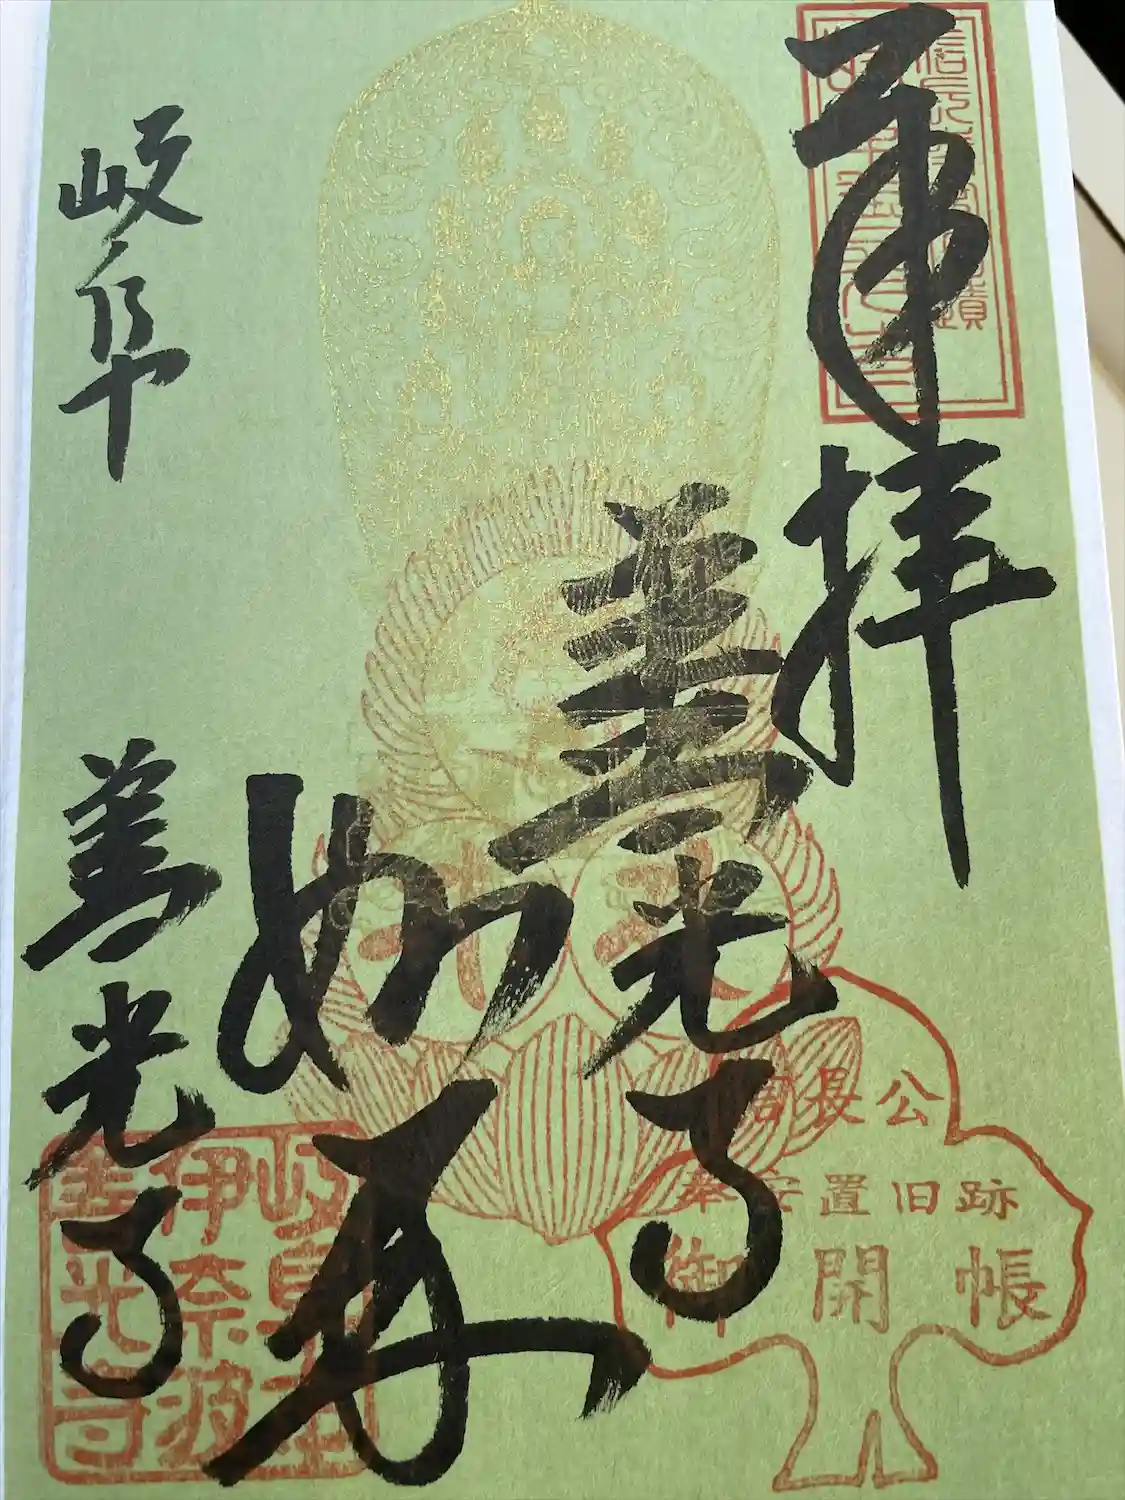 奉拝
善光寺
如来
岐阜
善光寺
信長公
奉安置旧跡
御開帳
岐阜
伊奈波
善光寺